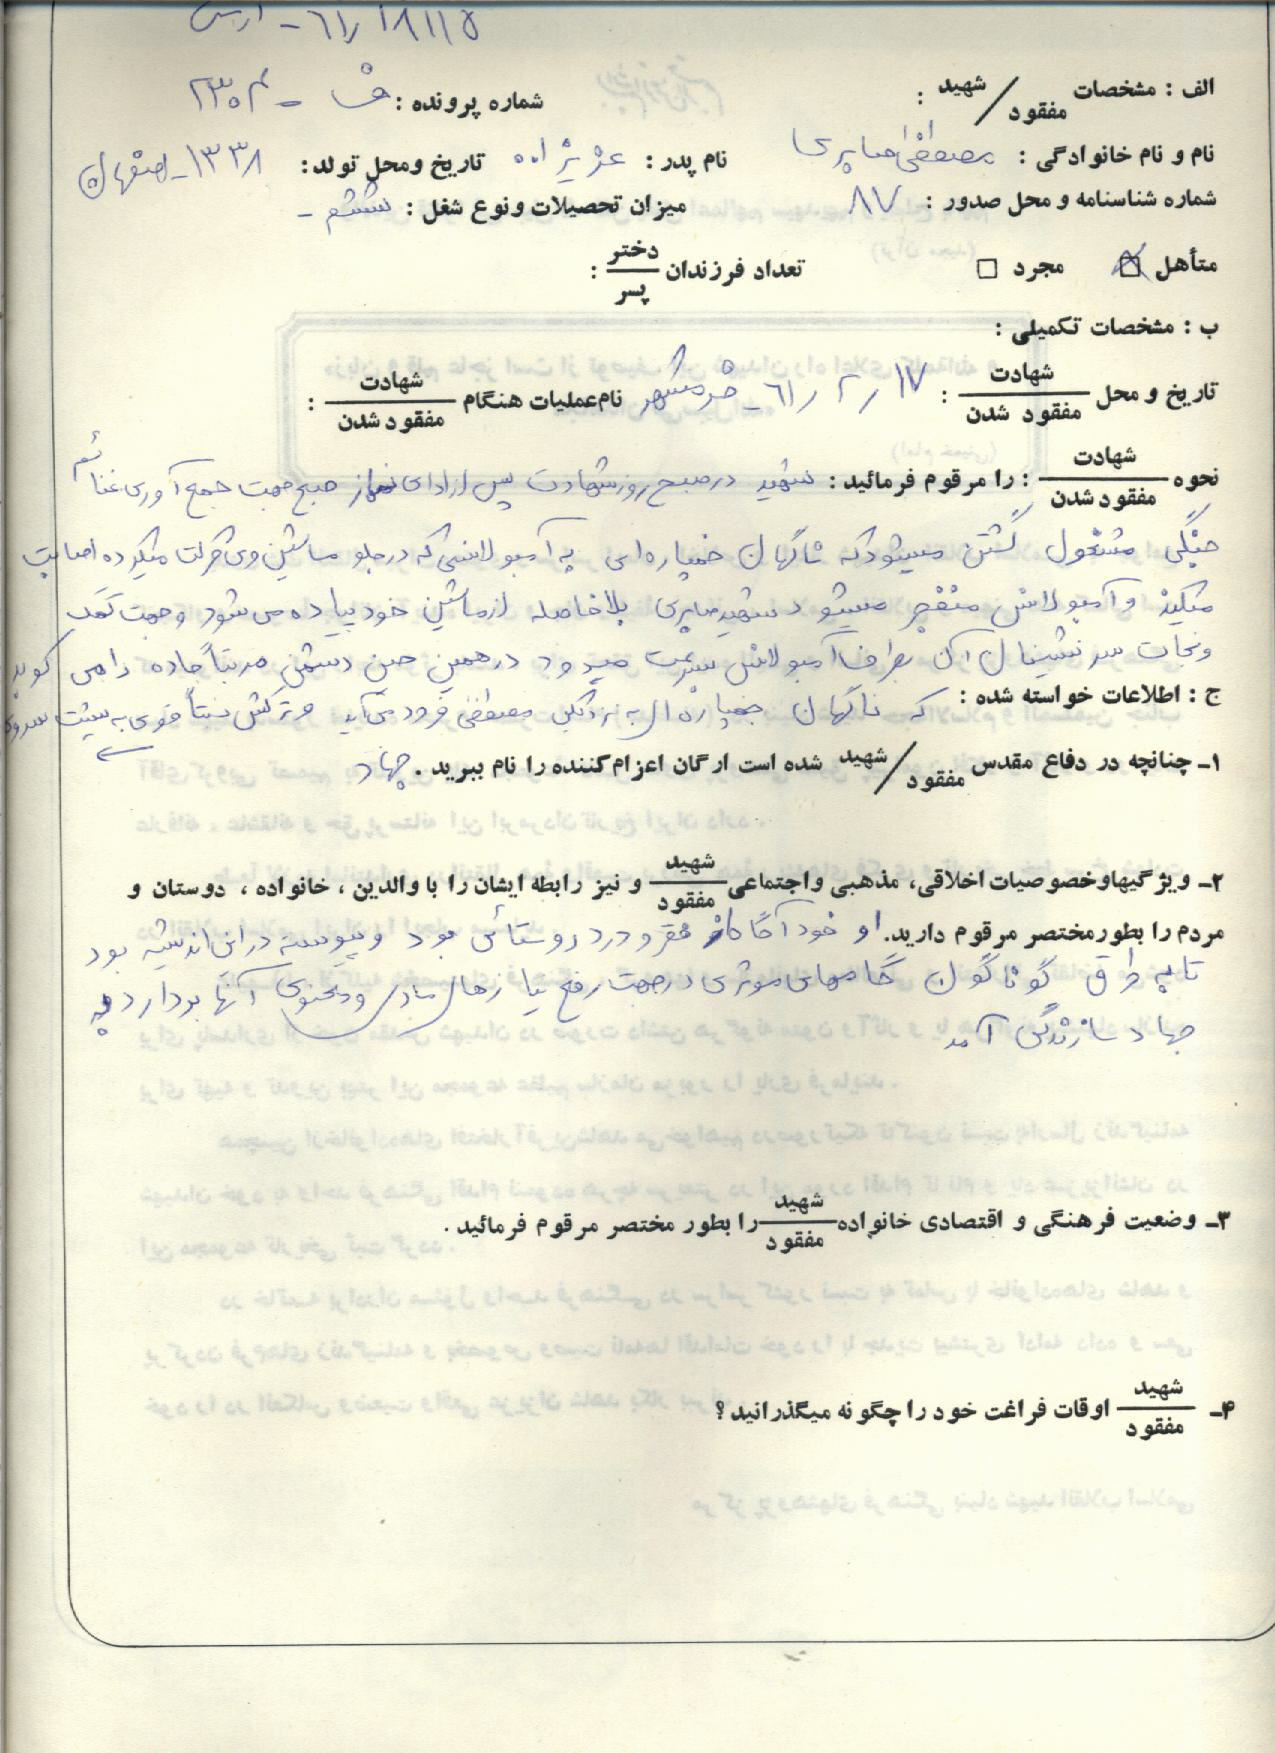 الف : مشخصات شهید / مفقود :
شماره پرونده : ف - ۲۳۰۴
نام و نام خانوادگی : مصطفی صابری نام پدر : عزیزاله تاریخ ومحل تولد : ۱۳۳۸ - اصفهان
شماره شناسنامه و محل صدور : ۸۷ میزان تحصیلات ونوع شغل : ششم -
متأهل مجرد تعداد فرزندان دختر / پسر :
ب : مشخصات تکمیلی :
تاریخ و محل شهادت / مفقود شدن : ۱۷ / ۲ / ۶۱ - خرمشهر نام عملیات هنگام شهادت / مفقود شدن :
نحوه شهادت / مفقود شدن : را مرقوم فرمائید : شهید در صبح روز شهادت پس از ادای نماز صبح جهت جمع آوری غنائم
جنگی مشغول گشتن میشود که ناگهان خمپاره ای به آمبولانسی که در جلو ماشین وی حرکت میکرده اصابت
میکند و آمبولانس منفجر میشود شهید صابری بلافاصله از ماشین خود پیاده می شود و جهت کمک
ونجات سرنشینان آن بطرف آمبولانس سرعت میرود در همین حین دشمن مرتباً جاده را می کوبد
ج : اطلاعات خواسته شده : که ناگهان خمپاره ای به نزدیکی مصطفی فرود می آید و ترکش نسبتاً قوی به پشت سر وی
۱ـ چنانچه در دفاع مقدس شهید / مفقود شده است ارگان اعزام کننده را نام ببرید . جهاد
۲ـ ویژگیهاوخصوصیات اخلاقی، مذهبی واجتماعی شهید / مفقود و نیز رابطه ایشان را با والدین ، خانواده ، دوستان و
مردم را بطورمختصر مرقوم دارید. او خود آگاه از فقر و درد روستائی بود و پیوسته در این اندیشه بود
تا به طرق گوناگون گامهای موثری در جهت رفع نیازهای مادی و معنوی آنها بردارد به
جهاد سازندگی آمد
۳ـ وضعیت فرهنگی و اقتصادی خانواده شهید / مفقود را بطور مختصر مرقوم فرمائید .
۴ـ شهید / مفقود اوقات فراغت خود را چگونه میگذرانید ؟